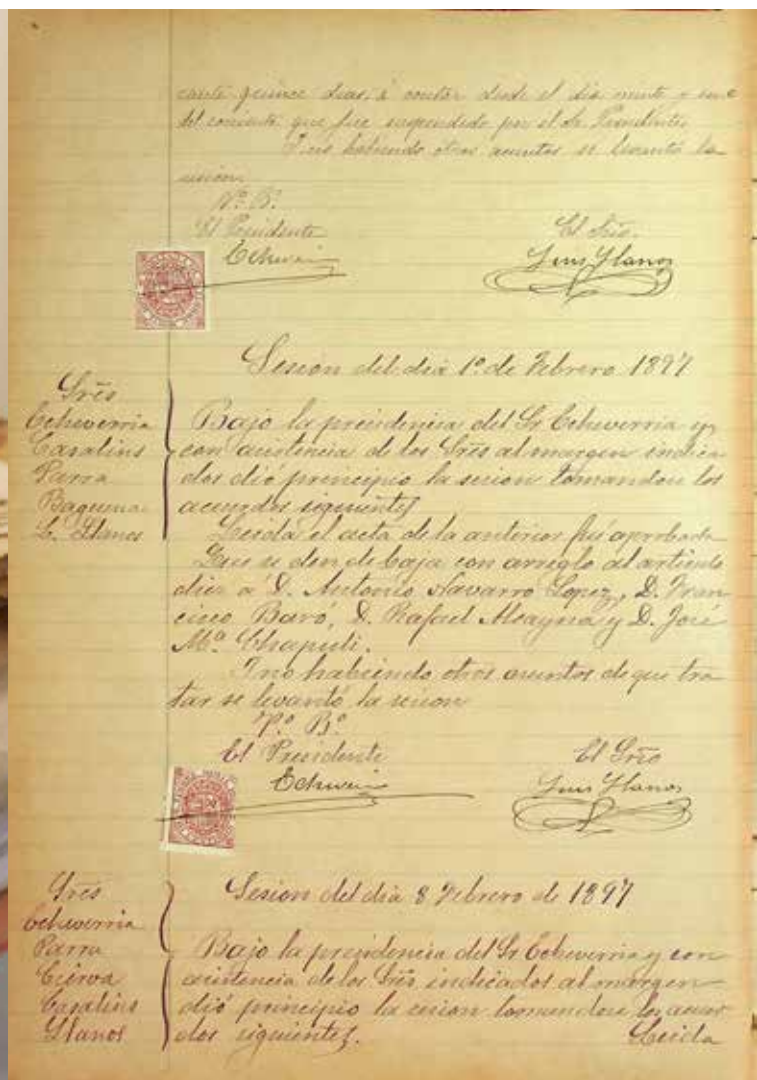 quince dias, á contar desde el dia veinte y
del corriente que fue suspendido por el Sr. Presidente
Y no habiendo otros asuntos se levantó la
sesion.
Vº. Bº.
El Presidente
El Srio.
Echeverria
Luis Llanos
Sesion del dia 1º de Febrero 1897
Sres
Echeverria
Casalins
Parra
Baquena
L. Llanos
Bajo la presidencia del Sr Echeverria y
con asistencia de los Sres al margen indica
dos dió principio la sesion tomandose los
acuerdos siguientes
Leida el acta de la anterior fué aprobada
Que se den de baja con arreglo al articulo
diez a D. Antonio Navarro Lopez, D. Fran
cisco Baró, D. Rafael Alcayna y D. José
Mª. Chapuli.
Y no habiendo otros asuntos de que tra
tar se levantó la sesion
Vº Bº
El Presidente
El Srio
Echeverria
Luis Llanos
Sesion del dia 8 Febrero de 1897
Sres
Echeverria
Parra
Cierva
Casalins
Llanos
Bajo la presidencia del Sr Echeverria y con
asistencia de los Sres indicados al margen
dió principio la cesion tomandose los acuer
dos siguientes. Leida